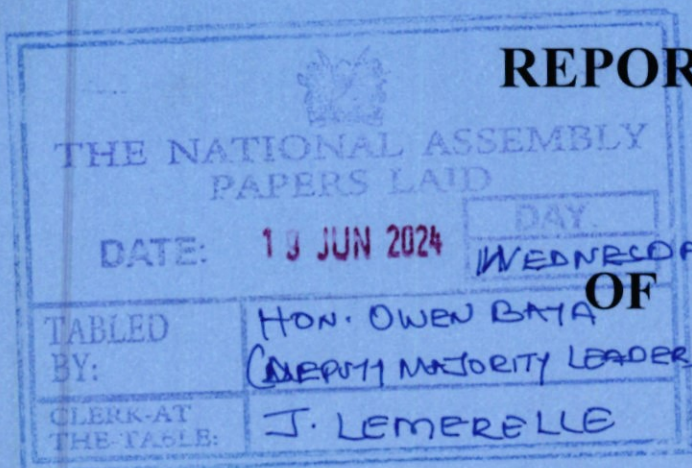 REPOR
THE NATIONAL ASSEMBLY
PAPERS LAID
DATE: 19 JUN 2024 DAY.
WEDNESDA
OF
TABLED BY: HON. OWEN BAYA
(DEPUTY MAJORITY LEADER
CLERK-AT THE-TABLE: J. LEMERELLE